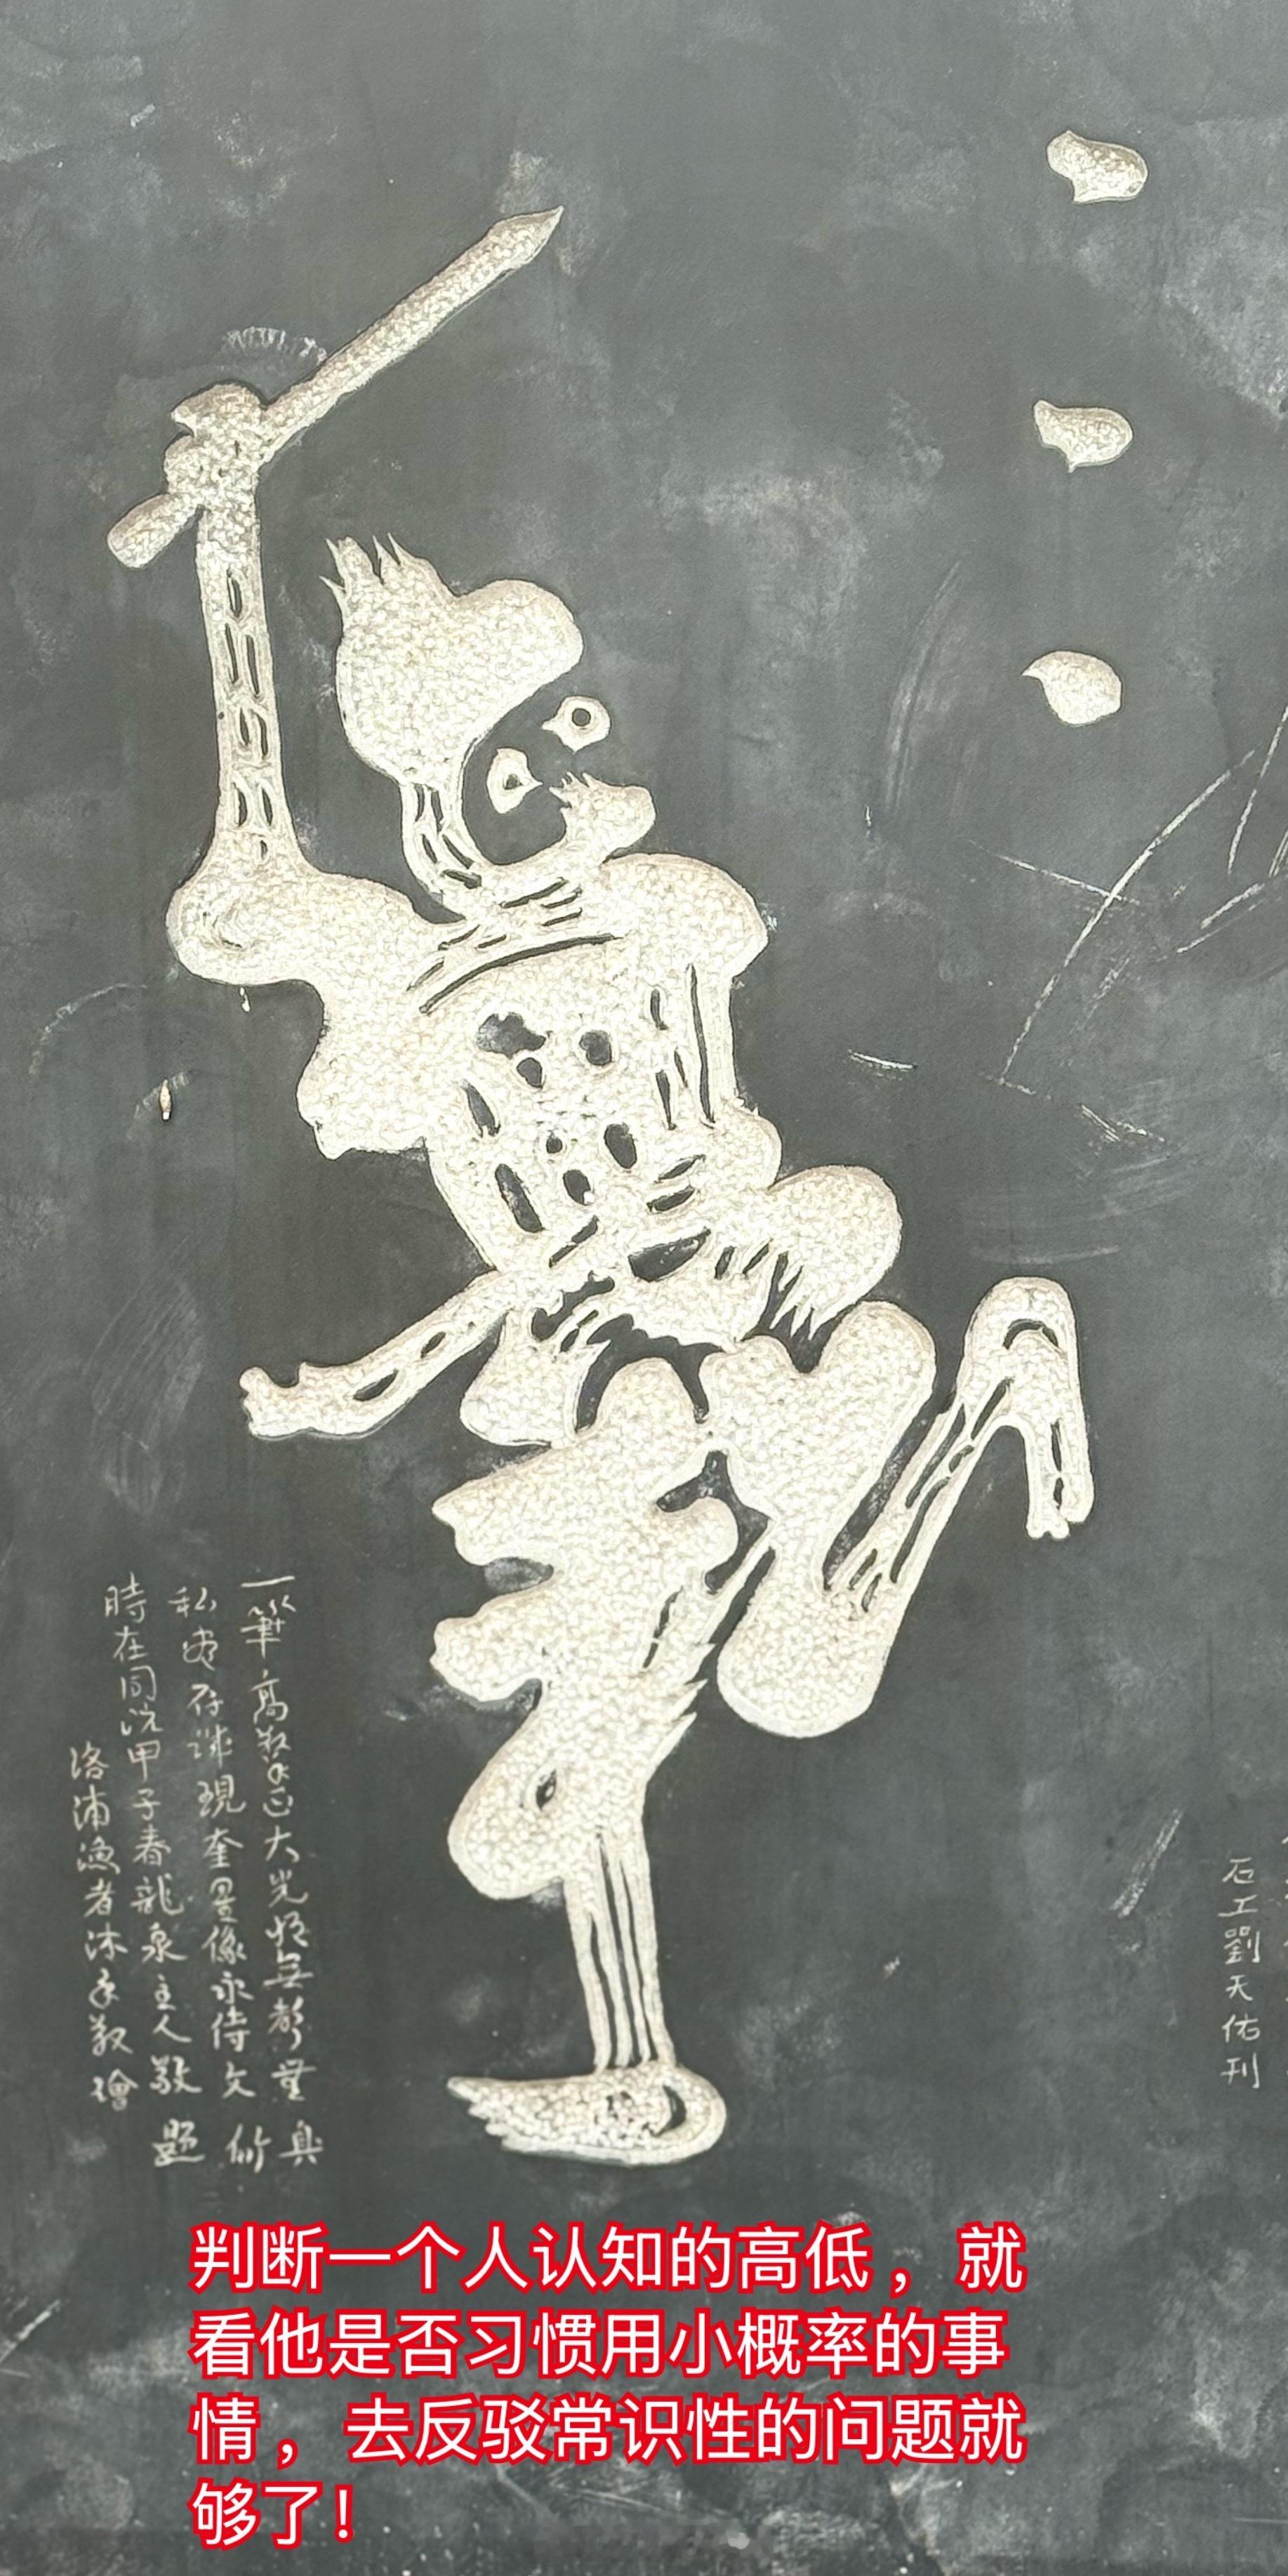 一筆高正大光無
私存誠現奎星像永侍文
時在同治甲子春龍泉主人敬題
洛浦漁者沐手敬繪
石工劉天佑刊
判断一个人认知的高低，就
看他是否习惯用小概率的事
情，去反驳常识性的问题就
够了！